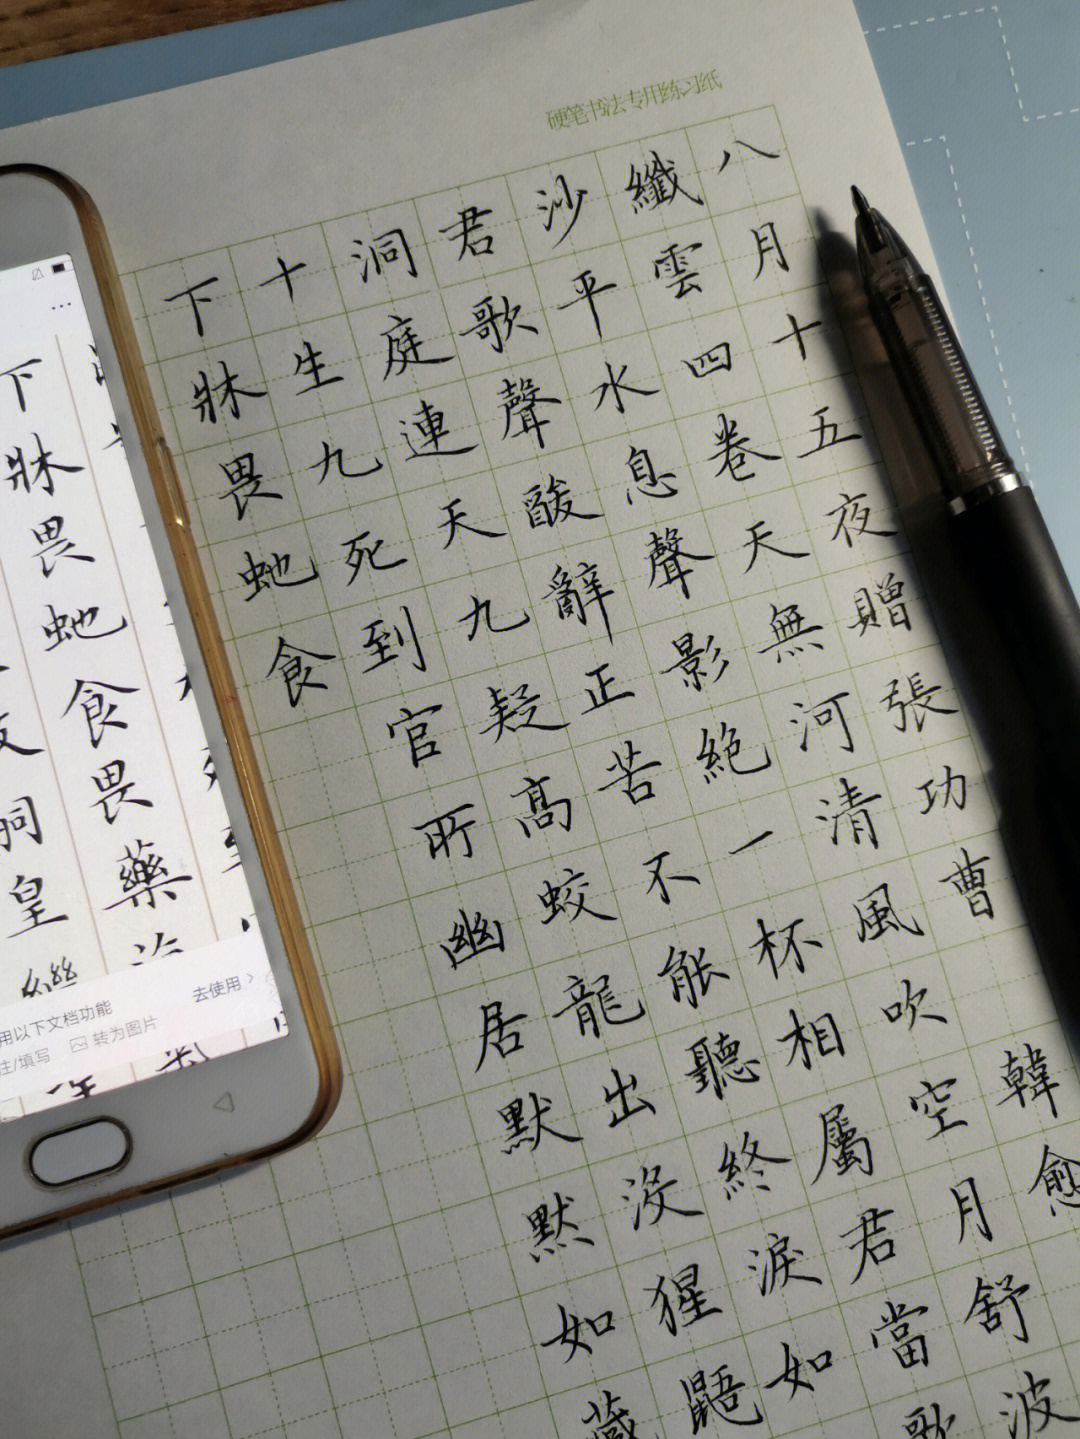 硬笔书法专用练习纸
八月十五夜贈張功曹 韓愈
纖雲四卷天無河清風吹空月舒波
沙平水息聲影絕一杯相屬君當歌
君歌聲酸辭正苦不能聽終淚如
洞庭連天九疑高蛟龍出沒猩鼯
十生九死到官所幽居默默如藏
下牀畏虵食
下牀畏虵食畏藥
嗣皇繼
用以下文档功能
去使用
注/填写 转为图片